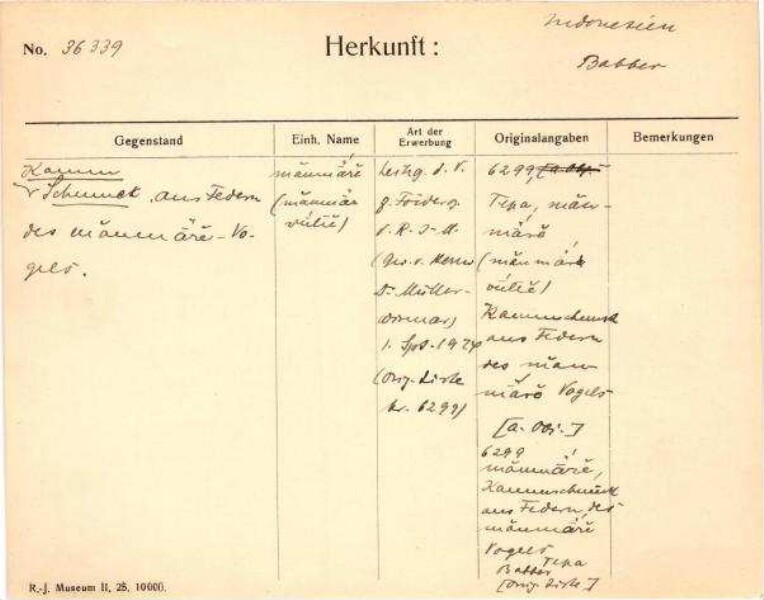 No. 36339
Herkunft:
Indonesien
Babber
Gegenstand
Einh. Name
Art der Erwerbung
Originalangaben
Bemerkungen
Kamm
Schmuck aus Federn
des männäré-Vo-
gels.
männäré
(männäré
vúlié)
Leihg. d. V.
z. Förderg.
d. R-J-M.
(Ges. v. Herrn
Dr Müller-
Wismar)
1. Spt. 1924
(Orig. Liste
Nr. 6299)
6299, [a. Obj.
Tepa, män-
märö
(männmärö
vúlié)
Kammschmuck
aus Federn
des män
märö Vogels
[a. Obj.]
6299
männäré,
Kammschmuck
aus Federn des
männäré
Vogels
Tepa
Babber
[Orig. Liste]
R.-J. Museum II, 25, 10000.